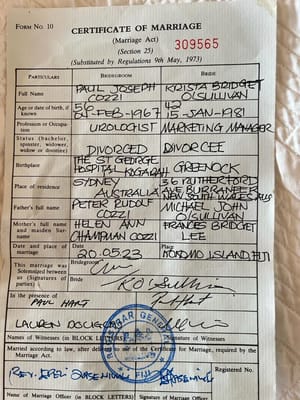 FORM No. 10
CERTIFICATE OF MARRIAGE
(Marriage Act)
(Section 25)
309565
(Substituted by Regulations 9th May, 1973)
PARTICULARS BRIDEGROOM BRIDE
Full Name PAUL JOSEPH COZZI KRISTA BRIDGET O'SULLIVAN
Age or date of birth, if known 56 04-FEB-1967 42 15-JAN-1981
Profession or Occupation UROLOGIST MARKETING MANAGER
Status (bachelor, spinster, widower, widow or divorcee) DIVORCED DIVORCEE
Birthplace THE ST GEORGE HOSPITAL KOGARAH GREENOCK
Place of residence SYDNEY AUSTRALIA 36 RUTHERFORD AVE BURRANEER NEW SOUTH WALES
Father's full name PETER RUDOLF COZZI MICHAEL JOHN O'SULLIVAN
Mother's full name and maiden Surname HELEN ANN CHAMPMAN COZZI FRANCES BRIDGET LEE
Date and place of marriage Date 20.05.23 Place KOROMO ISLAND, FIJI
This marriage was Solemnized between us (Signatures of parties) Bridegroom
Bride K O'Sullivan
In the presence of
PAUL HART P Hart
LAUREN
Names of Witnesses (in BLOCK LETTERS) Signature of Witnesses
REGISTRAR GENERAL
FIJI
Married according to law, after delivery to me of the Certificate for Marriage, required by the Marriage Act.
REV.
Registered No.
Name of Marriage Officer (in BLOCK LETTERS) Signature of Marriage Officer